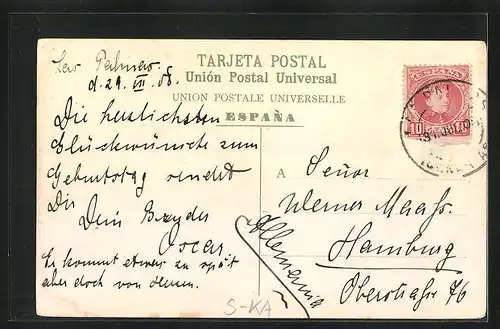 Las Palmas
d. 29. VII. 08.
TARJETA POSTAL
Unión Postal Universal
UNION POSTALE UNIVERSELLE
ESPAÑA
ESPAÑA
10 10
Die herzlichsten
Glückwünsche zum
Geburtstag sendet
Dir
Dein Bruder
Oscar
Es kommt etwas zu spät
aber doch von Herzen.
A
Señor
Werner Maass.
Hamburg
Oberstraße 76
Allemania
S-KA